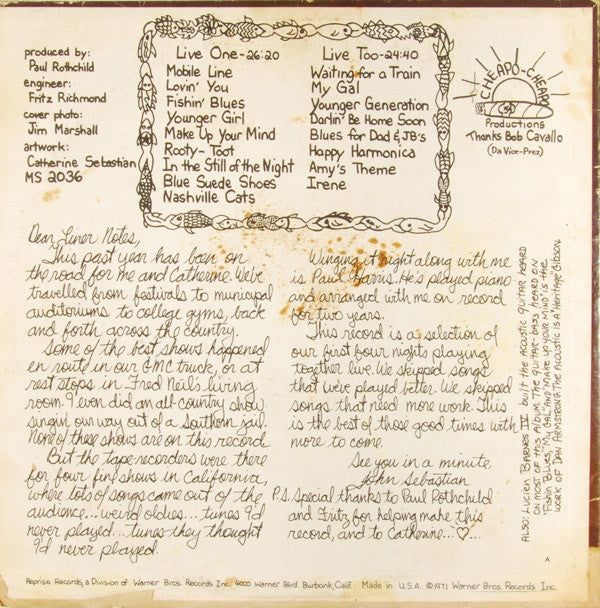 produced by:
Paul Rothchild
engineer:
Fritz Richmond
cover photo:
Jim Marshall
artwork:
Catherine Sebastian
MS 2036
Live One-26:20
Mobile Line
Lovin' You
Fishin' Blues
Younger Girl
Make Up Your Mind
Rooty-Toot
In the Still of the Night
Blue Suede Shoes
Nashville Cats
Live Too-24:40
Waiting for a Train
My Gal
Younger Generation
Darlin' Be Home Soon
Blues for Dad & JB's
Happy Harmonica
Amy's Theme
Irene
CHEAPO-CHEAPO
Productions
Thanks Bob Cavallo
(Da Vice-Prez)
Dear Liner Notes,
This past year has been on
the road for me and Catherine. We've
travelled from festivals to municipal
auditoriums to college gyms, back
and forth across the country.
Some of the best shows happened
en route in our GMC truck, or at
rest stops in Fred Neil's living
room. I even did an all-country show
singin' our way out of a southern jail.
None of these shows are on this record.
But the tape-recorders were there
for four fine shows in California,
where lots of songs came out of the
audience... weird oldies... tunes I'd
never played... tunes they thought
I'd never played.
Winging it right along with me
is Paul Harris. He's played piano
and arranged with me on record
for two years.
This record is a selection of
our first four nights playing
together live. We skipped songs
that we've played better. We skipped
songs that need more work. This
is the best of those good times with
more to come.
See you in a minute,
John Sebastian
P.S. Special thanks to Paul Rothchild
and Fritz for helping make this
record, and to Catherine...♡...
ALSO: LUCIEN BARNES IV BUILT THE ACOUSTIC GUITAR HEARD
ON MOST OF THIS ALBUM. THE GUITAR-BASS HEARD ON
"FISHIN' BLUES, MY GAL, AND MAKE UP YOUR MIND" IS THE
WORK OF DAN ARMSTRONG. THE ACOUSTIC IS A "HERITAGE" GIBSON.
A
Reprise Records, a Division of Warner Bros. Records Inc. 4000 Warner Blvd. Burbank, Calif. Made in U.S.A. ©1971 Warner Bros. Records Inc.